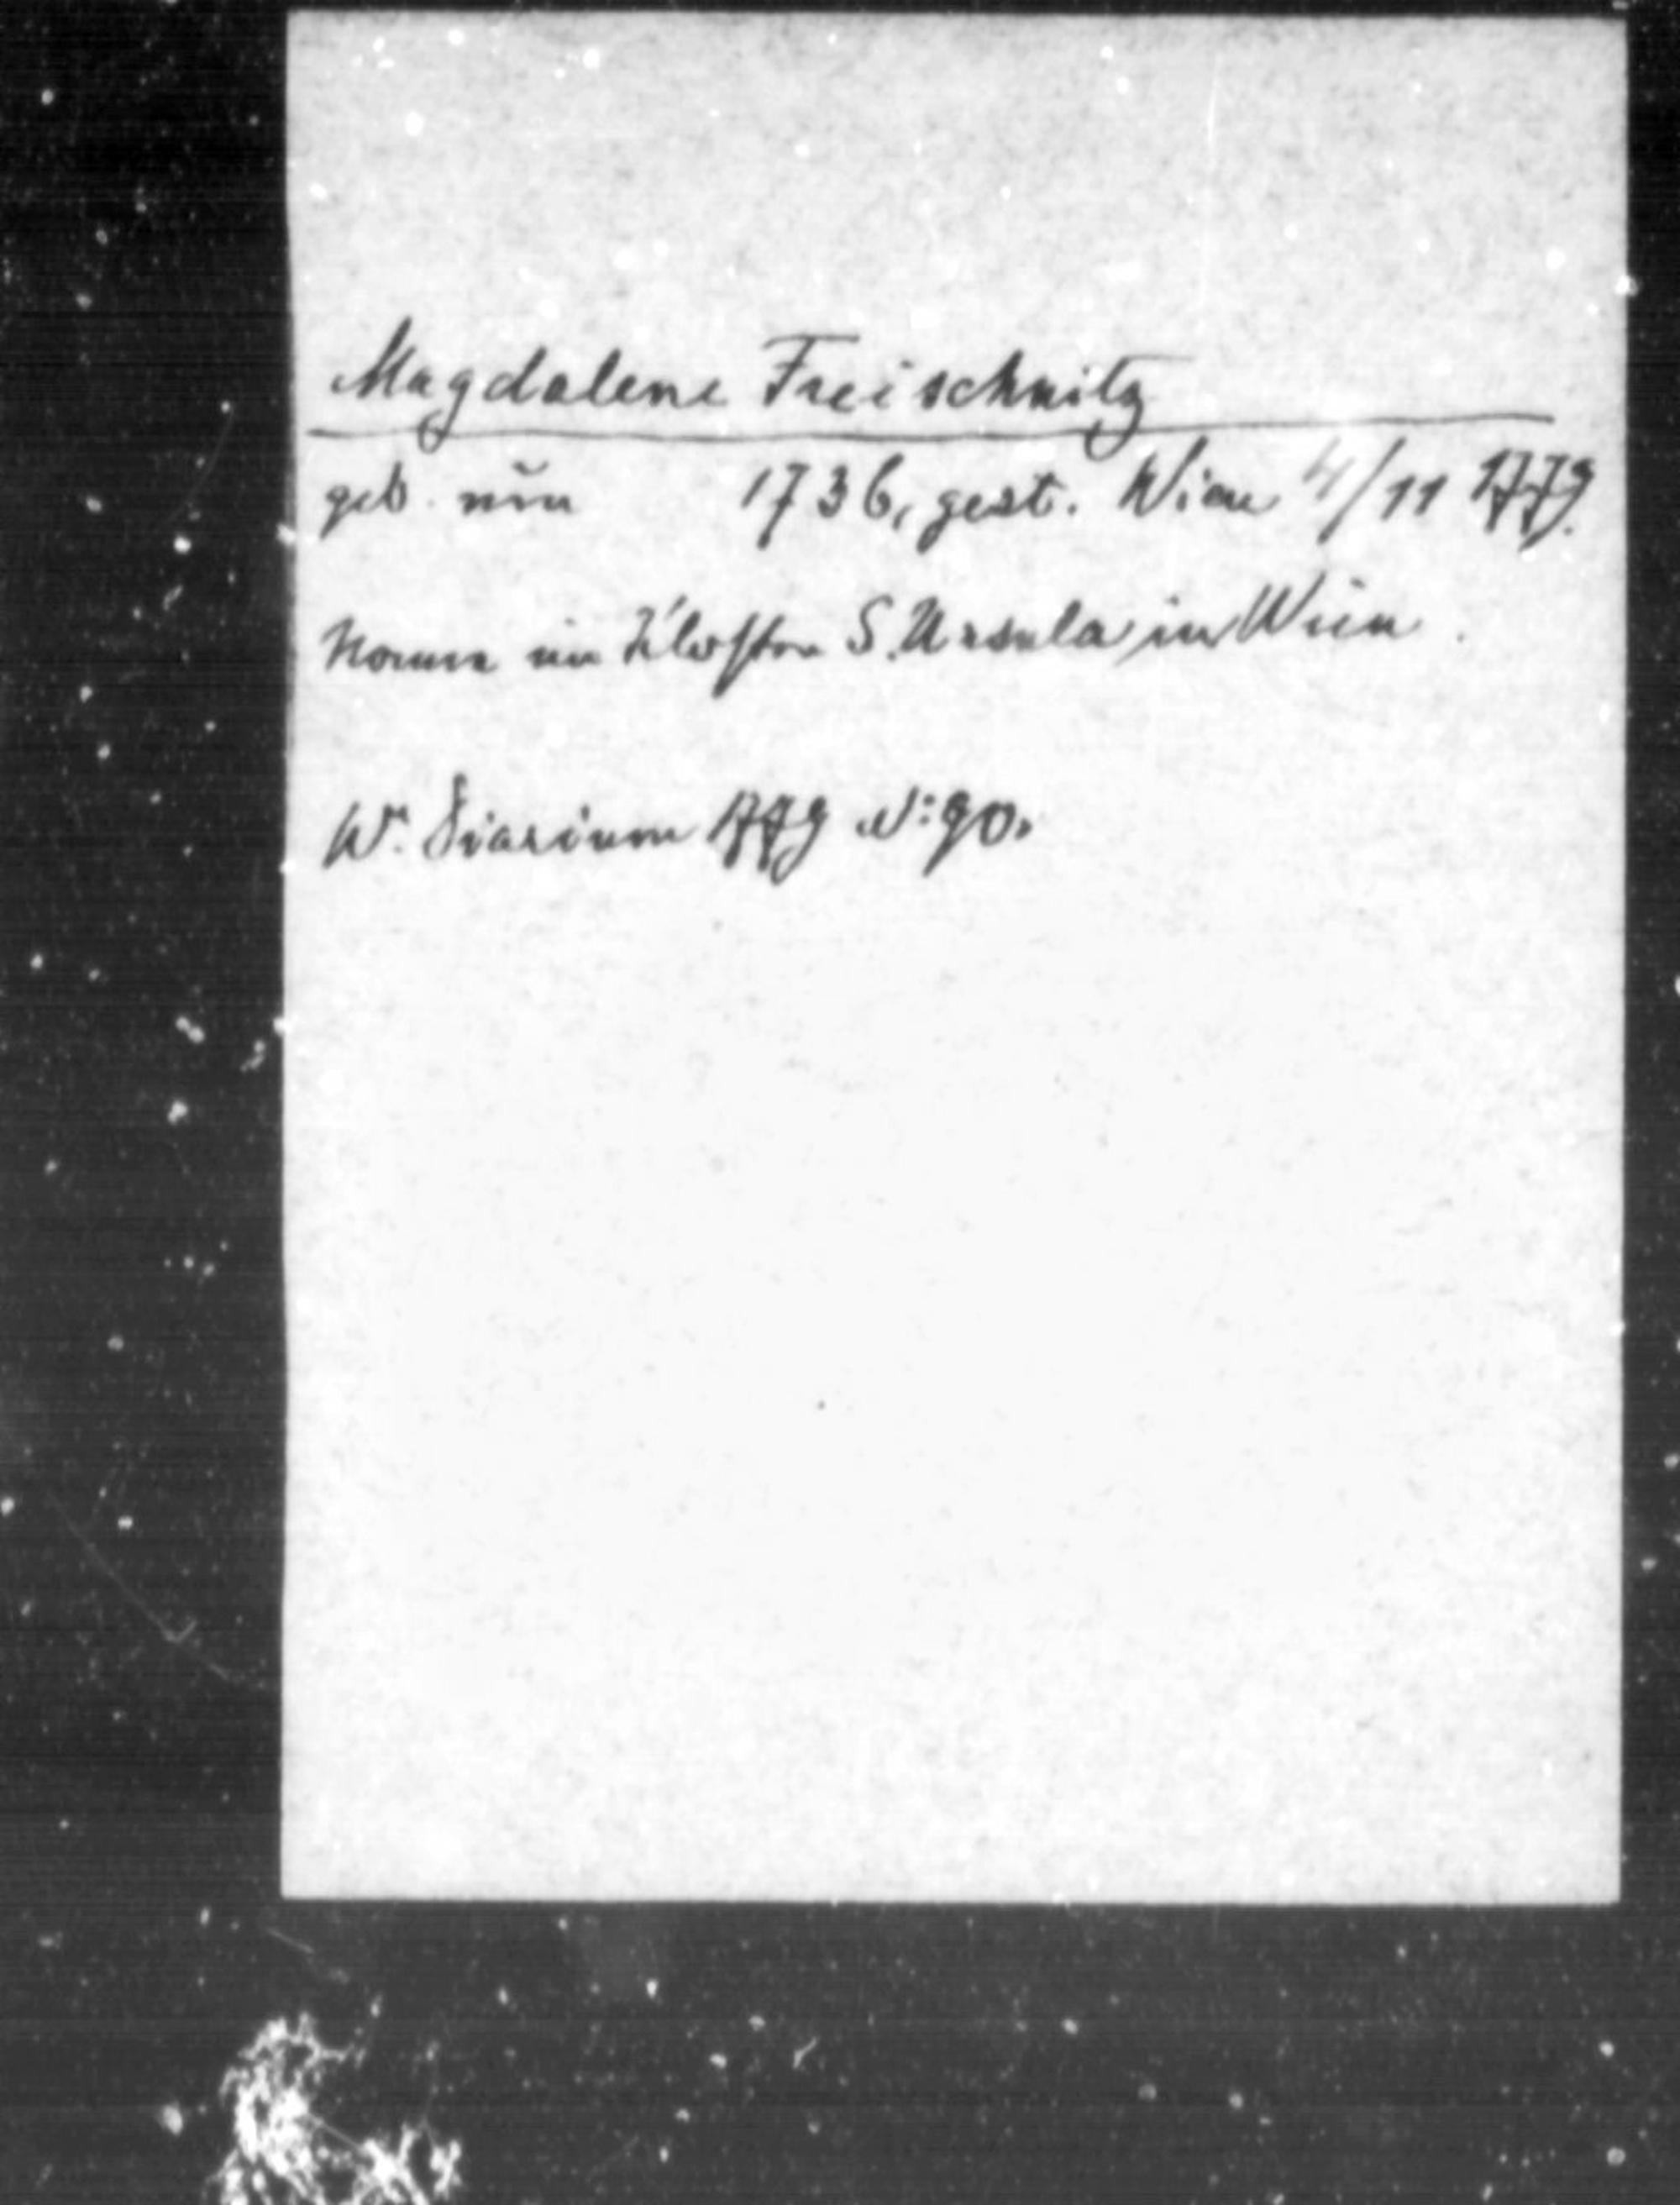 Magdalene Freischnitz
geb. um 1736, gest. Wien 4/11 1779.
Nonne im Kloster S. Ursula in Wien.
Wr. Diarium 1779 N: 90.